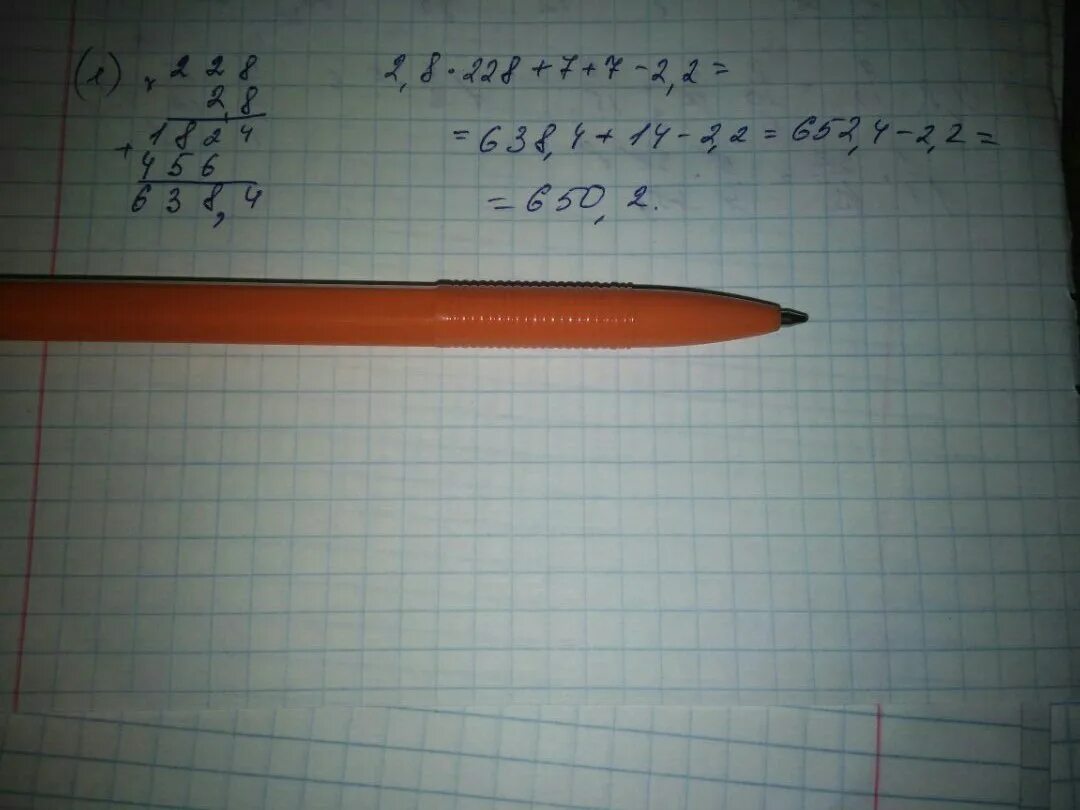 (1) × 228
2,8
+ 1824
456
638,4
2,8 · 228 + 7 + 7 - 2,2 =
= 638,4 + 14 - 2,2 = 652,4 - 2,2 =
= 650,2.